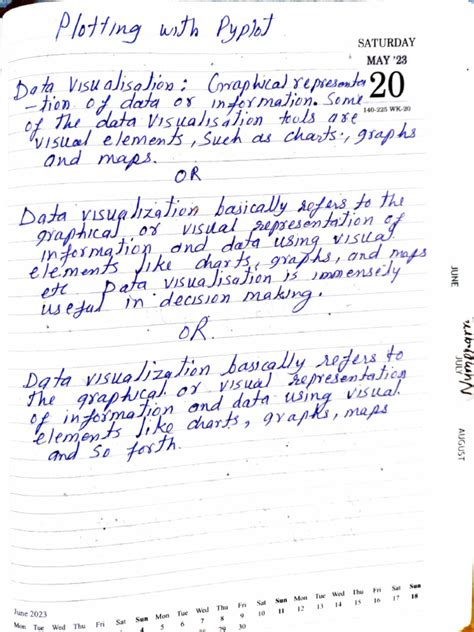 Plotting with Pyplot
SATURDAY
MAY '23
20
140-225 WK-20
Data Visualisation : Graphical representa
-tion of data or information. Some
of the data Visualisation tools are
visual elements, Such as charts, graphs
and maps.
OR
Data visualization basically refers to the
graphical or visual representation of
information and data using visual
elements like charts, graphs, and maps
etc Data visualisation is immensely
useful in decision making.
OR
Data visualization basically refers to
the graphical or visual representation
of information and data using visual
elements like charts, graphs, maps
and so forth.
JUNE
JULY
AUGUST
June 2023
Mon Tue Wed Thu Fri Sat Sun Mon Tue Wed Thu Fri Sat Sun Mon Tue Wed Thu Fri Sat Sun
4 5 6 7 8 9 10 11 12 13 14 15 16 17 18
28 29 30